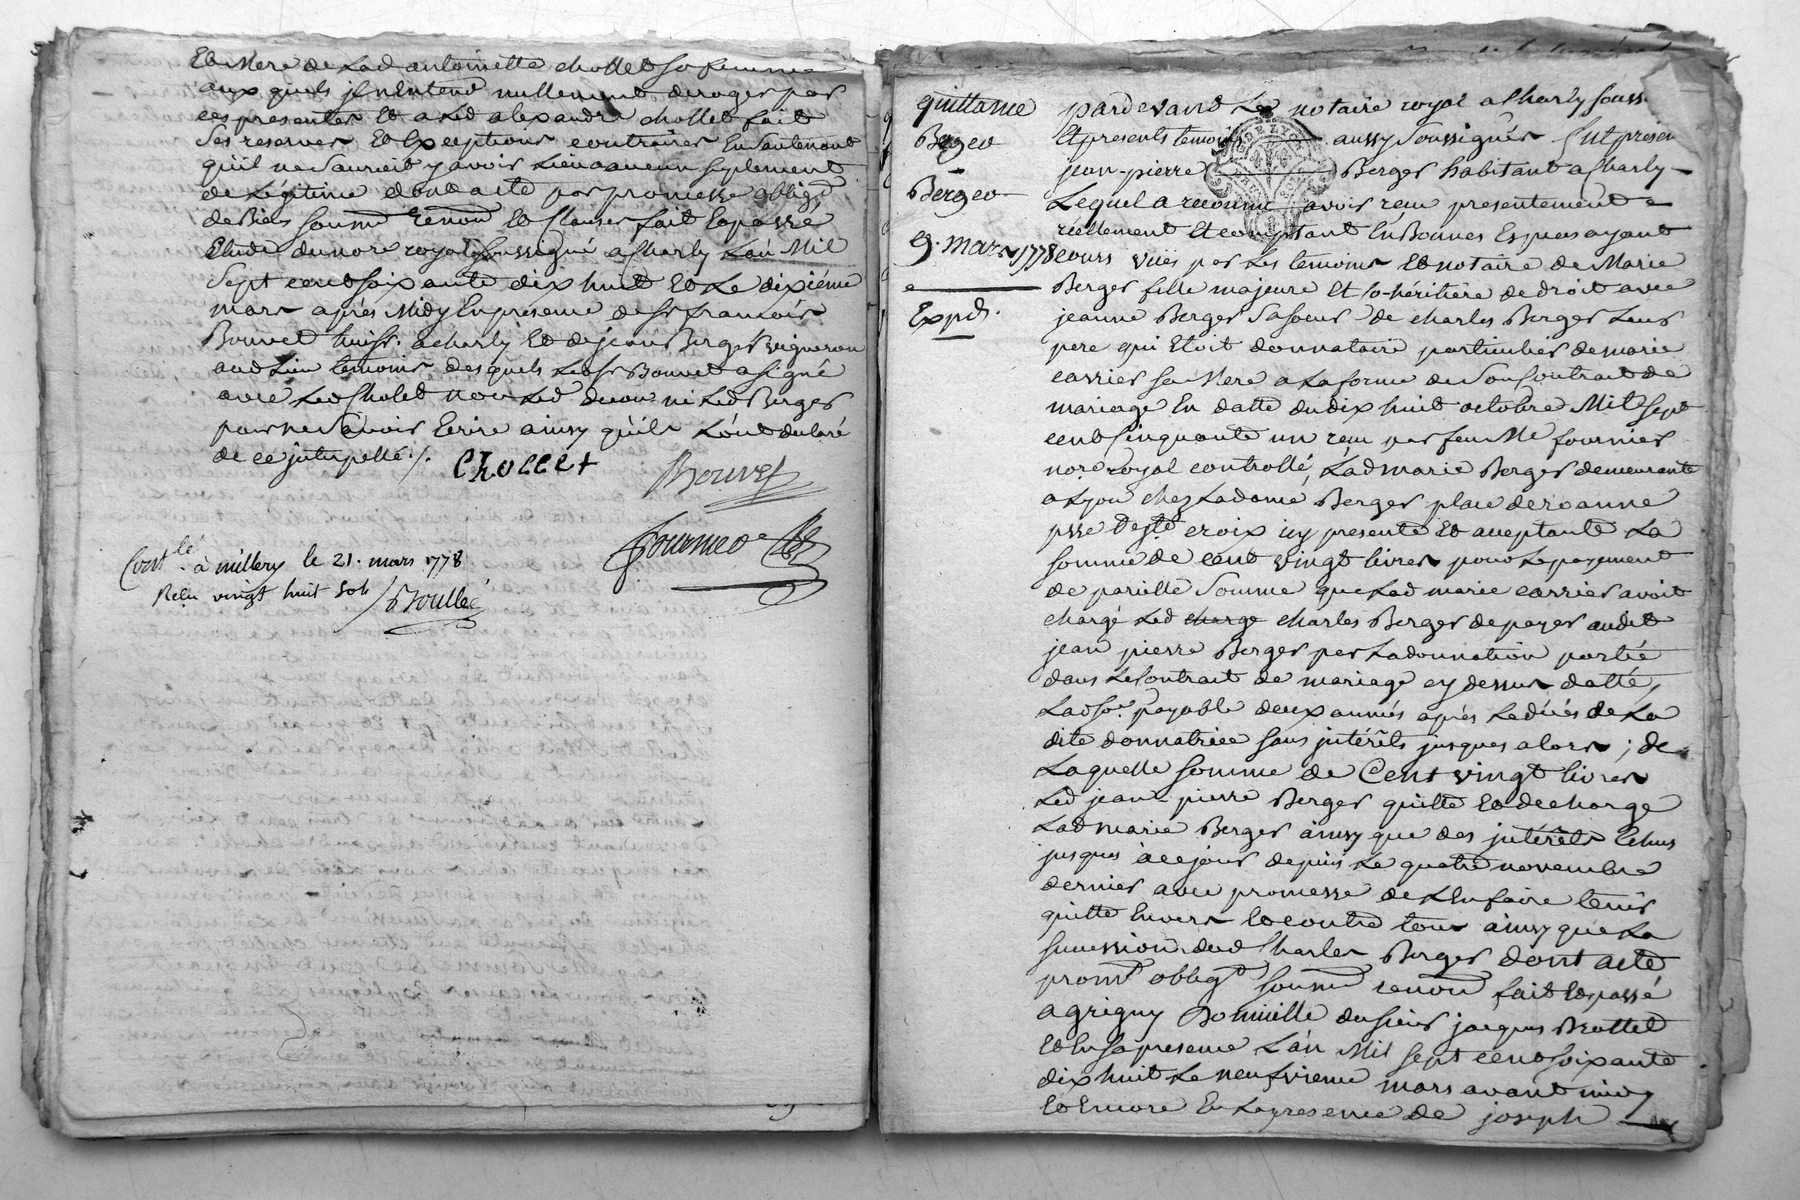 Et Mere de Lad antoinette chollet sa femme
aux quels il n'Entend nullement deroger par
ces presentes Et aud alexandre chollet fait
Ses reserves Et Exceptions contraires En Soutenant
qu'il ne Sauroit y avoir Lieu a aucun suplement
de Légitime dont acte par promesse obligon
de Biens soumon renonon Et Clauses fait Et passé
Etude du nore royal soussigné a Charly L'an Mil
Sept cent soixante dix huit Et Le dixiéme
mars aprés Midy En presence de Sr francois
Bouvet huissr. a charly Et de jean Berger vigneron
aud Lieu temoins desquels Led Sr Bouvet a signé
avec Led Cholet non Led ni Led Berger
pour ne Savoir Ecrire ainsy qu'ils L'ont declaré
de ce jnterpellé ./.
CHOLLEt
Bouvet
fournier Nre
Contlé. à millery le 21. mars 1778
Reçu vingt huit sols
Boullée
quittance
Berger
a
Berger
9. mars 1778
Expd.
pardevant Le notaire royal a Charly souss
Et presents temoins aussy Soussignés fut presen
jean-pierre Berger habitant a Charly
Lequel a reconnu avoir reçu presentement
réellement Et comptant En Bonnes Especes ayant
cours vües par Les temoins Et notaire de Marie
Berger fille majeure Et Co-héritiére de droit avec
jeanne Berger Sa Soeur de charles Berger Leur
pere qui Etoit donnataire particulier de marie
carrier sa Mere a La forme de Son Contrait de
mariage En datte du dix huit octobre Mil Sept
cent cinquante un reçu par feu Me fournier
nore royal controllé, Lad marie Berger demeurante
a Lyon chez La dame Berger place de roanne
psse de ste croix icy presente Et acceptante La
somme de cent vingt livres pour Le payement
de pareille Somme que Lad marie carrier avoit
chargé Led charge charles Berger de payer audit
jean pierre Berger par La donnation portée
dans Le Contrait de mariage cy dessus datté,
Lad se. payable deux années aprés Le décés de La
dite donnatrice sans jntérêts jusques alors ; de
Laquelle somme de Cent vingt livres
Led jean-pierre Berger quitte Et decharge
Lad marie Berger ainsy que des jntérêts Echus
jusques à ce jour depuis Le quatre novembre
dernier avec promesse de L'En faire tenir
quitte Envers Et contre tous ainsy que La
succession dud Charles Berger dont acte
promse obligon soumon renonon fait Et passé
a grigny Domicille du sieur jacques Brottet
Et En sa presence L'an Mil Sept cent soixante
dix huit Le neufvieme mars avant midy
Et Encore En La presence de joseph